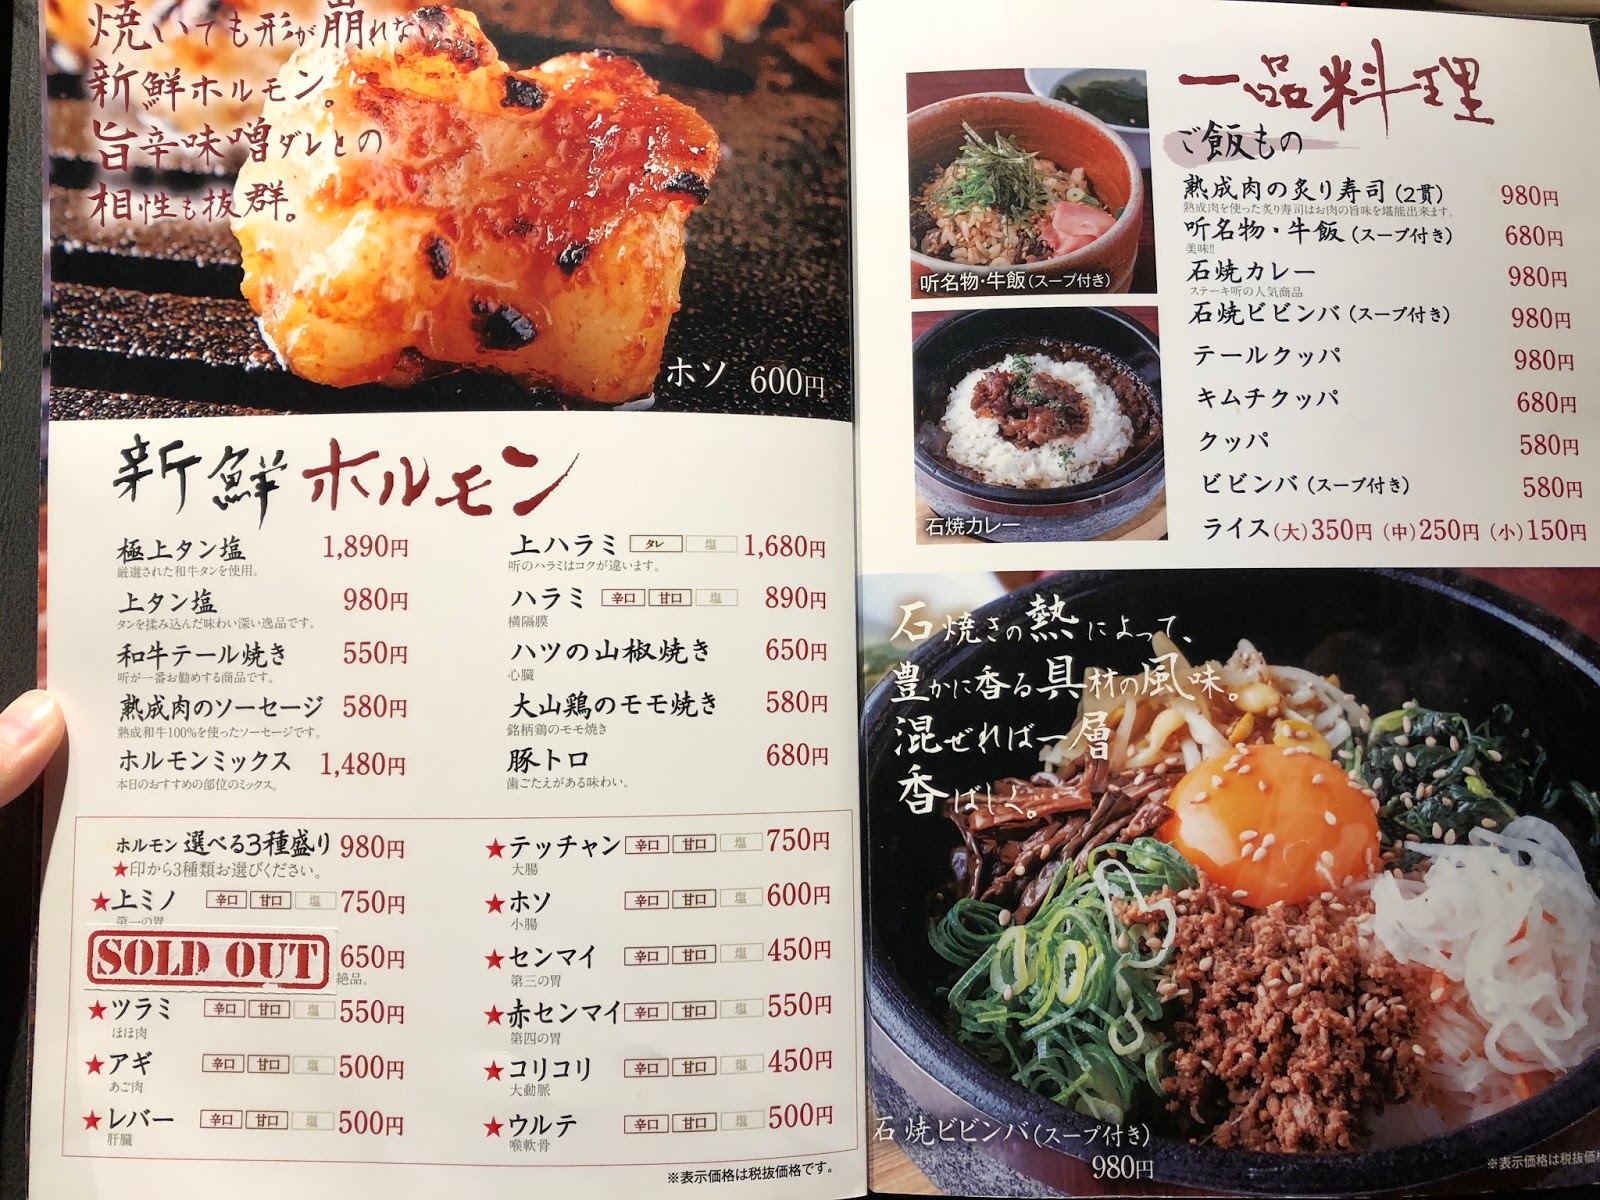 焼いても形が崩れない
新鮮ホルモン。
旨辛味噌ダレとの
相性も抜群。
ホソ 600円
新鮮ホルモン
極上タン塩 1,890円
厳選された和牛タンを使用。
上タン塩 980円
タンを揉み込んだ味わい深い逸品です。
和牛テール焼き 550円
听が一番お勧めする商品です。
熟成肉のソーセージ 580円
熟成和牛100%を使ったソーセージです。
ホルモンミックス 1,480円
本日のおすすめの部位のミックス。
上ハラミ タレ 塩 1,680円
听のハラミはコクが違います。
ハラミ 辛口 甘口 塩 890円
横隔膜
ハツの山椒焼き 650円
心臓
大山鶏のモモ焼き 580円
銘柄鶏のモモ焼き
豚トロ 680円
歯ごたえがある味わい。
ホルモン 選べる3種盛り 980円
★印から3種類お選びください。
★上ミノ 辛口 甘口 塩 750円
第一の胃
SOLD OUT 650円
絶品。
★ツラミ 辛口 甘口 塩 550円
ほほ肉
★アギ 辛口 甘口 塩 500円
あご肉
★レバー 辛口 甘口 塩 500円
肝臓
★テッチャン 辛口 甘口 塩 750円
大腸
★ホソ 辛口 甘口 塩 600円
小腸
★センマイ 辛口 甘口 塩 450円
第三の胃
★赤センマイ 辛口 甘口 塩 550円
第四の胃
★コリコリ 辛口 甘口 塩 450円
大動脈
★ウルテ 辛口 甘口 塩 500円
喉軟骨
※表示価格は税抜価格です。
一品料理
ご飯もの
听名物・牛飯(スープ付き)
石焼カレー
熟成肉の炙り寿司(2貫) 980円
熟成肉を使った炙り寿司はお肉の旨味を堪能出来ます。
听名物・牛飯(スープ付き) 680円
美味!!
石焼カレー 980円
ステーキ听の人気商品
石焼ビビンバ(スープ付き) 980円
テールクッパ 980円
キムチクッパ 680円
クッパ 580円
ビビンバ(スープ付き) 580円
ライス(大)350円(中)250円(小)150円
石焼きの熱によって、
豊かに香る具材の風味。
混ぜれば一層
香ばしく。
石焼ビビンバ(スープ付き)
980円
※表示価格は税抜価格